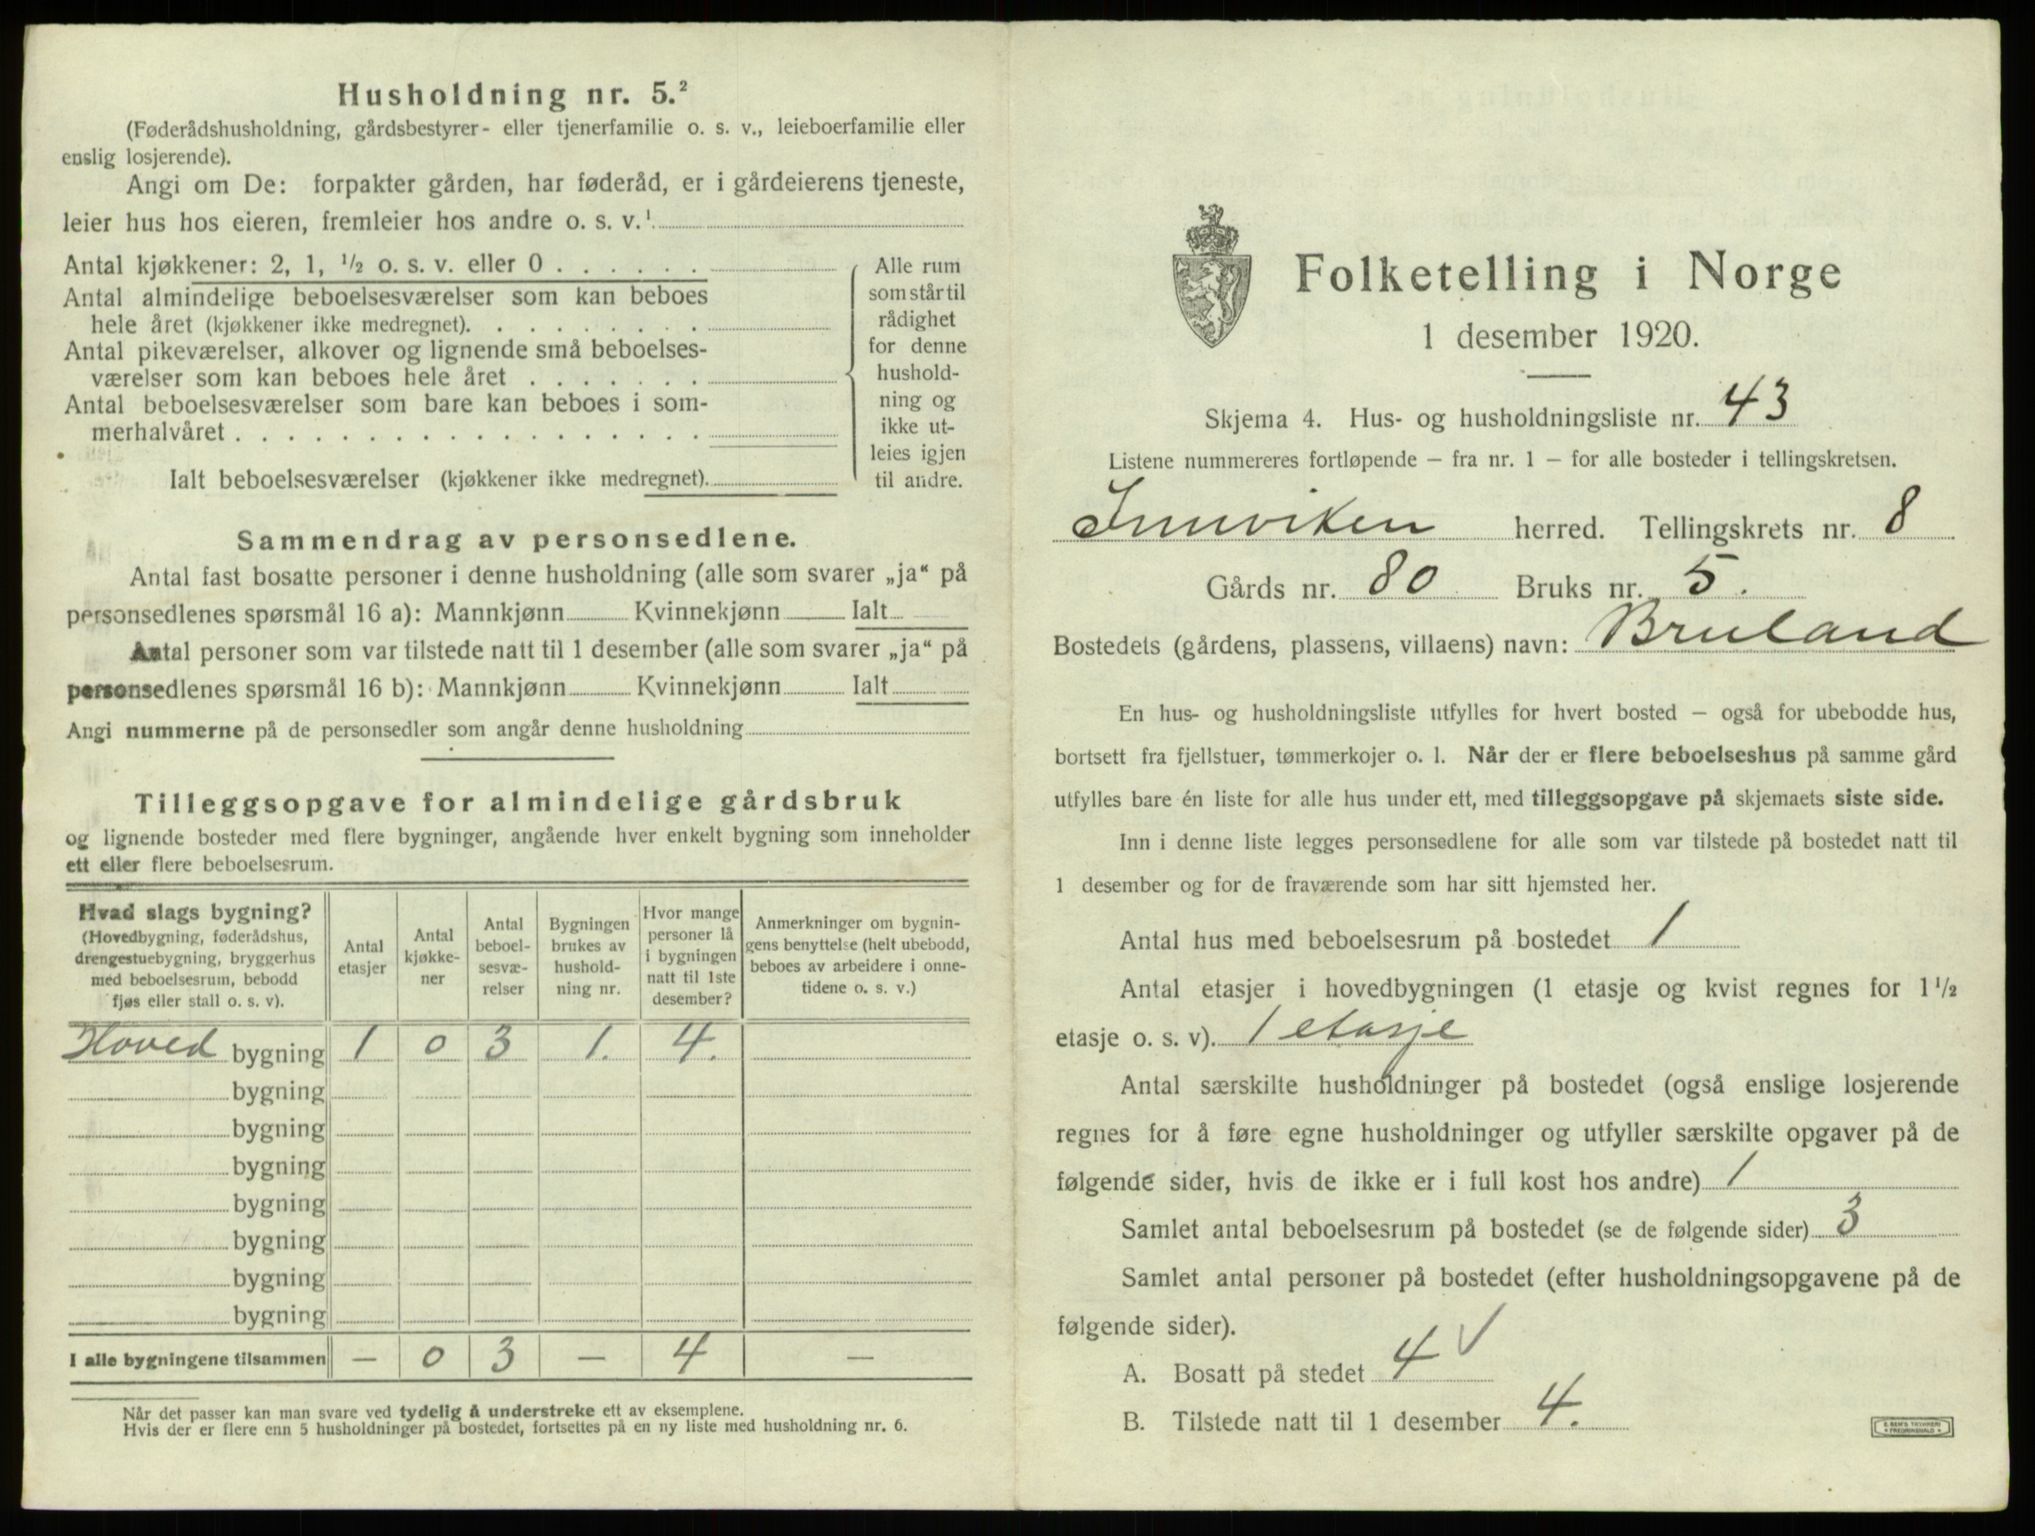 Husholdning nr. 5.²
(Føderådshusholdning, gårdsbestyrer- eller tjenerfamilie o. s. v., leieboerfamilie eller
enslig losjerende).
Angi om De: forpakter gården, har føderåd, er i gårdeierens tjeneste,
leier hus hos eieren, fremleier hos andre o. s. v.¹
Antal kjøkkener: 2, 1, ½ o. s. v. eller 0 . . . . . .
Antal almindelige beboelsesværelser som kan beboes
hele året (kjøkkener ikke medregnet). . . . . . . . .
Antal pikeværelser, alkover og lignende små beboelses-
værelser som kan beboes hele året . . . . . . .
Antal beboelsesværelser som bare kan beboes i som-
merhalvåret . . . . . . . . . . . . . . . . . .
Ialt beboelsesværelser (kjøkkener ikke medregnet).
Alle rum
som står til
rådighet
for denne
hushold-
ning og
ikke ut-
leies igjen
til andre.
Sammendrag av personsedlene.
Antal fast bosatte personer i denne husholdning (alle som svarer „ja“ på
personsedlenes spørsmål 16 a): Mannkjønn Kvinnekjønn Ialt
Antal personer som var tilstede natt til 1 desember (alle som svarer „ja“ på
personsedlenes spørsmål 16 b): Mannkjønn Kvinnekjønn Ialt
Angi nummerne på de personsedler som angår denne husholdning
Tilleggsopgave for almindelige gårdsbruk
og lignende bosteder med flere bygninger, angående hver enkelt bygning som inneholder
ett eller flere beboelsesrum.
Hvad slags bygning?
(Hovedbygning, føderådshus,
drengestuebygning, bryggerhus
med beboelsesrum, bebodd
fjøs eller stall o. s. v).
Antal
etasjer
Antal
kjøkke-
ner
Antal
beboel-
sesvæ-
relser
Bygningen
brukes av
hushold-
ning nr.
Hvor mange
personer lå
i bygningen
natt til 1ste
desember?
Anmerkninger om bygnin-
gens benyttelse (helt ubebodd,
beboes av arbeidere i onne-
tidene o. s. v.)
Hoved bygning 1 0 3 1. 4.
bygning
bygning
bygning
bygning
bygning
bygning
bygning
I alle bygningene tilsammen — 0 3 — 4 —
Når det passer kan man svare ved tydelig å understreke ett av eksemplene.
Hvis der er flere enn 5 husholdninger på bostedet, fortsettes på en ny liste med husholdning nr. 6.
Folketelling i Norge
1 desember 1920.
Skjema 4. Hus- og husholdningsliste nr. 43
Listene nummereres fortløpende – fra nr. 1 – for alle bosteder i tellingskretsen.
Innviken herred. Tellingskrets nr. 8
Gårds nr. 80 Bruks nr. 5.
Bostedets (gårdens, plassens, villaens) navn: Bruland
En hus- og husholdningsliste utfylles for hvert bosted – også for ubebodde hus,
bortsett fra fjellstuer, tømmerkojer o. l. Når der er flere beboelseshus på samme gård
utfylles bare én liste for alle hus under ett, med tilleggsopgave på skjemaets siste side.
Inn i denne liste legges personsedlene for alle som var tilstede på bostedet natt til
1 desember og for de fraværende som har sitt hjemsted her.
Antal hus med beboelsesrum på bostedet 1
Antal etasjer i hovedbygningen (1 etasje og kvist regnes for 1½
etasje o. s. v). 1 etasje
Antal særskilte husholdninger på bostedet (også enslige losjerende
regnes for å føre egne husholdninger og utfyller særskilte opgaver på de
følgende sider, hvis de ikke er i full kost hos andre) 1
Samlet antal beboelsesrum på bostedet (se de følgende sider) 3
Samlet antal personer på bostedet (efter husholdningsopgavene på de
følgende sider).
A. Bosatt på stedet 4 √
B. Tilstede natt til 1 desember 4.